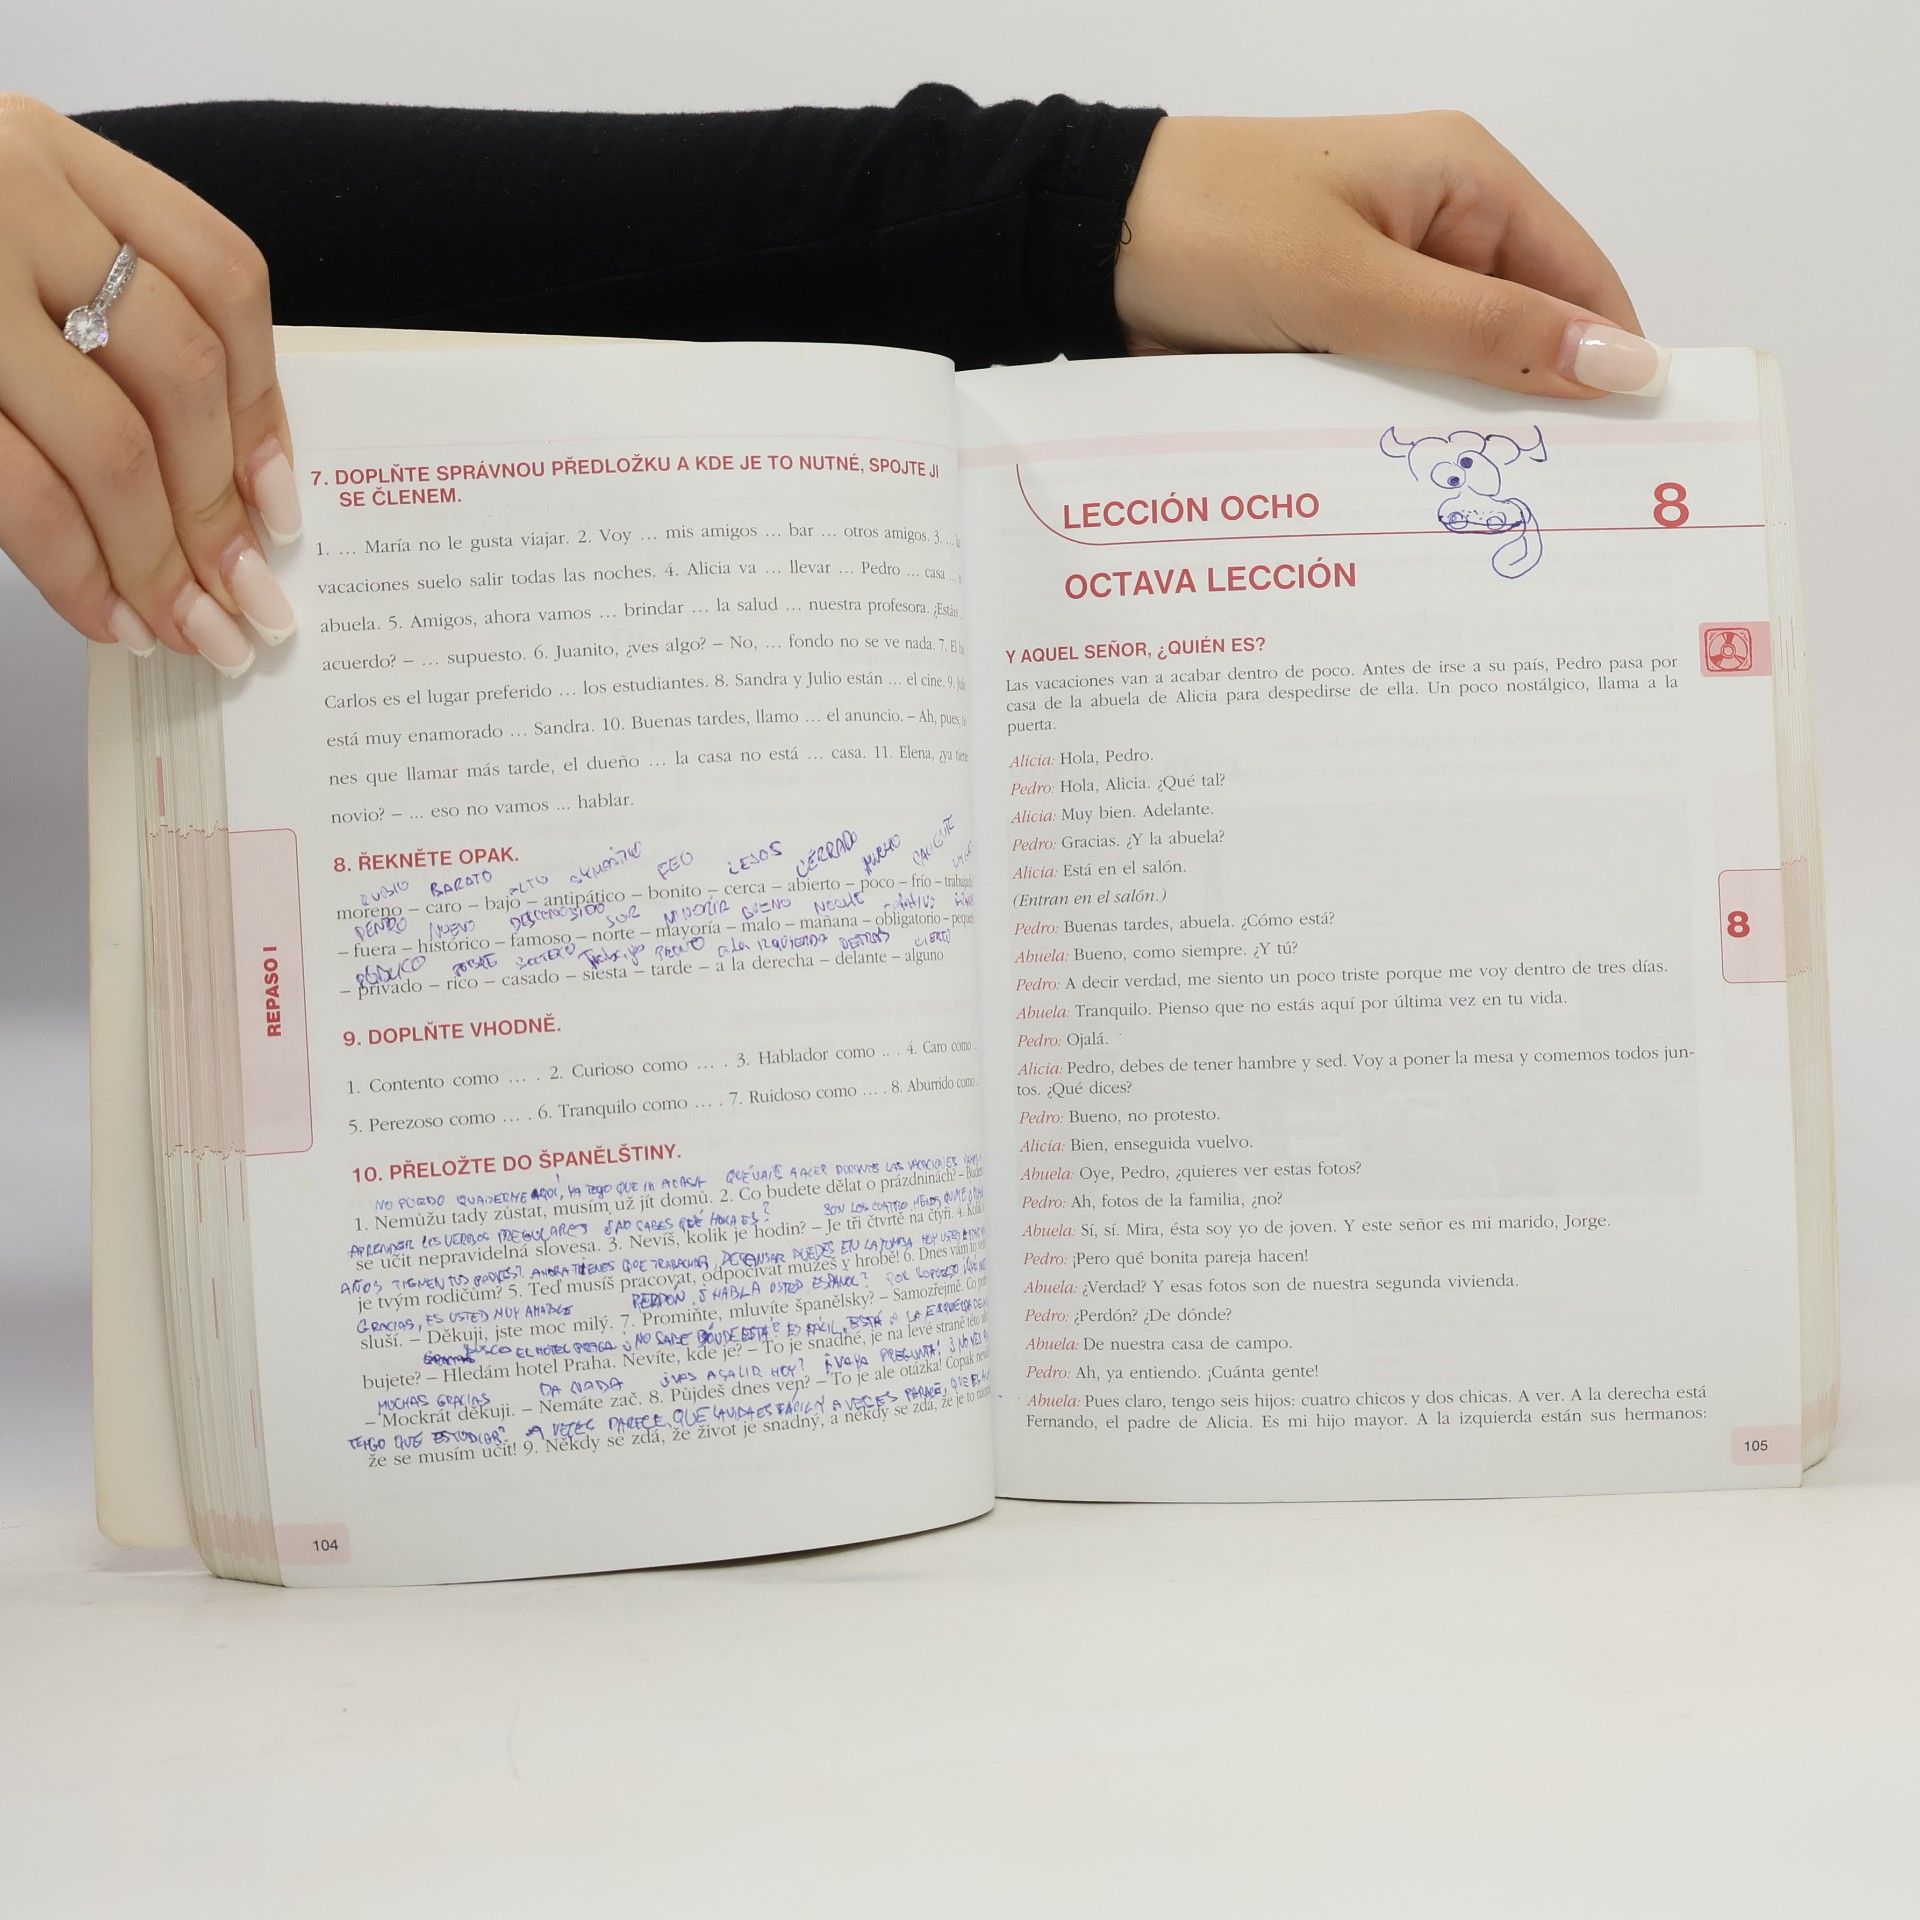 7. DOPLŇTE SPRÁVNOU PŘEDLOŽKU A KDE JE TO NUTNÉ, SPOJTE JI
SE ČLENEM.
1. … María no le gusta viajar. 2. Voy … mis amigos … bar … otros amigos. 3. …
vacaciones suelo salir todas las noches. 4. Alicia va … llevar … Pedro … casa …
abuela. 5. Amigos, ahora vamos … brindar … la salud … nuestra profesora. ¿Estáis
acuerdo? – … supuesto. 6. Juanito, ¿ves algo? – No, … fondo no se ve nada. 7. El
Carlos es el lugar preferido … los estudiantes. 8. Sandra y Julio están … el cine. 9.
está muy enamorado … Sandra. 10. Buenas tardes, llamo … el anuncio. – Ah, pues,
nes que llamar más tarde, el dueño … la casa no está … casa. 11. Elena, ¿ya
novio? – ... eso no vamos ... hablar.
8. ŘEKNĚTE OPAK.
RUBIO BARATO ALTO FEO LEJOS CERRADO MUCHO
moreno – caro – bajo – antipático – bonito – cerca – abierto – poco – frío –
DENTRO NUEVO SUR BUENO NOCHE
– fuera – histórico – famoso – norte – mayoría – malo – mañana – obligatorio –
PÚBLICO SOLTERO a la IZQUIERDA DETRÁS
– privado – rico – casado – siesta – tarde – a la derecha – delante – alguno
9. DOPLŇTE VHODNĚ.
1. Contento como … . 2. Curioso como … . 3. Hablador como .. . 4. Caro como
5. Perezoso como … . 6. Tranquilo como … . 7. Ruidoso como … . 8. Aburrido como
10. PŘELOŽTE DO ŠPANĚLŠTINY.
NO PUEDO AQUÍ, QUE LAS VACACIONES
1. Nemůžu tady zůstat, musím už jít domů. 2. Co budete dělat o prázdninách? –
APRENDER LOS VERBOS IREGULARES ¿NO SABES QUÉ HORA ES? SON LAS CUATRO MENOS
se učit nepravidelná slovesa. 3. Nevíš, kolik je hodin? – Je tři čtvrtě na čtyři. 4.
AÑOS TIENEN TUS PADRES? AHORA TIENES QUE TRABAJAR, DESCANSAR PUEDES EN LA TUMBA HOY USTED
je tvým rodičům? 5. Teď musíš pracovat, odpočívat můžeš v hrobě! 6. Dnes vám to
GRACIAS, ES USTED MUY AMABLE PERDÓN, ¿HABLA USTED ESPAÑOL? POR SUPUESTO
sluší. – Děkuji, jste moc milý. 7. Promiňte, mluvíte španělsky? – Samozřejmě. Co
BUSCO EL HOTEL PRAGA ¿NO SABE DÓNDE ESTÁ? ES FÁCIL, ESTÁ
bujete? – Hledám hotel Praha. Nevíte, kde je? – To je snadné, je na levé straně této
MUCHAS GRACIAS DA NADA ¿VAS A SALIR HOY? ¡VAYA PREGUNTA!
– Mockrát děkuji. – Nemáte zač. 8. Půjdeš dnes ven? – To je ale otázka! Copak
TENGO QUE ESTUDIAR? PARECE, QUE A VECES PARECE, QUE
že se musím učit! 9. Někdy se zdá, že život je snadný, a někdy se zdá, že je to
REPASO I
104
LECCIÓN OCHO 8
OCTAVA LECCIÓN
Y AQUEL SEÑOR, ¿QUIÉN ES?
Las vacaciones van a acabar dentro de poco. Antes de irse a su país, Pedro pasa por
casa de la abuela de Alicia para despedirse de ella. Un poco nostálgico, llama a la
puerta.
Alicia: Hola, Pedro.
Pedro: Hola, Alicia. ¿Qué tal?
Alicia: Muy bien. Adelante.
Pedro: Gracias. ¿Y la abuela?
Alicia: Está en el salón.
(Entran en el salón.)
Pedro: Buenas tardes, abuela. ¿Cómo está?
Abuela: Bueno, como siempre. ¿Y tú?
Pedro: A decir verdad, me siento un poco triste porque me voy dentro de tres días.
Abuela: Tranquilo. Pienso que no estás aquí por última vez en tu vida.
Pedro: Ojalá.
Alicia: Pedro, debes de tener hambre y sed. Voy a poner la mesa y comemos todos jun-
tos. ¿Qué dices?
Pedro: Bueno, no protesto.
Alicia: Bien, enseguida vuelvo.
Abuela: Oye, Pedro, ¿quieres ver estas fotos?
Pedro: Ah, fotos de la familia, ¿no?
Abuela: Sí, sí. Mira, ésta soy yo de joven. Y este señor es mi marido, Jorge.
Pedro: ¡Pero qué bonita pareja hacen!
Abuela: ¿Verdad? Y esas fotos son de nuestra segunda vivienda.
Pedro: ¿Perdón? ¿De dónde?
Abuela: De nuestra casa de campo.
Pedro: Ah, ya entiendo. ¡Cuánta gente!
Abuela: Pues claro, tengo seis hijos: cuatro chicos y dos chicas. A ver. A la derecha está
Fernando, el padre de Alicia. Es mi hijo mayor. A la izquierda están sus hermanos:
8
105